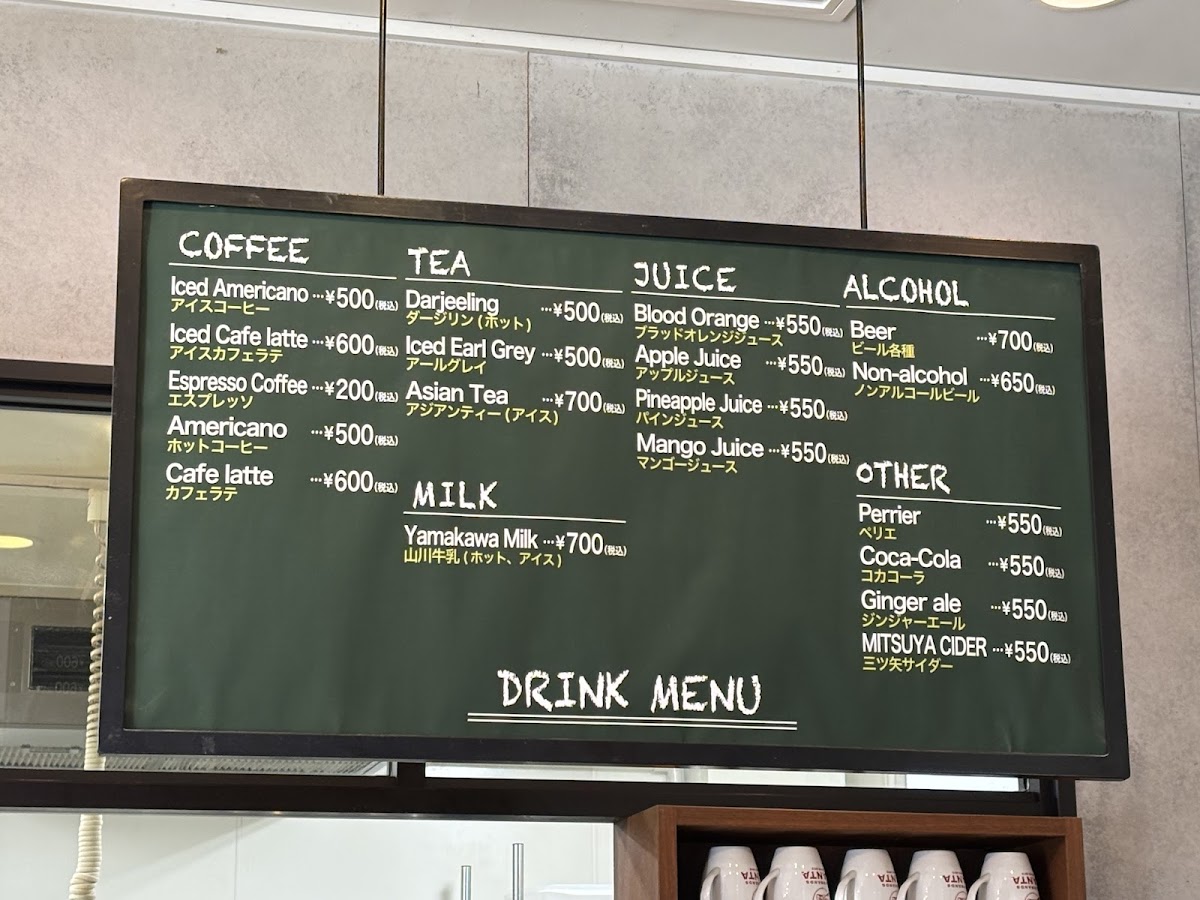 COFFEE
Iced Americano …¥500(税込)
アイスコーヒー
Iced Cafe latte …¥600(税込)
アイスカフェラテ
Espresso Coffee …¥200(税込)
エスプレッソ
Americano …¥500(税込)
ホットコーヒー
Cafe latte …¥600(税込)
カフェラテ
TEA
Darjeeling …¥500(税込)
ダージリン(ホット)
Iced Earl Grey …¥500(税込)
アールグレイ
Asian Tea …¥700(税込)
アジアンティー(アイス)
MILK
Yamakawa Milk …¥700(税込)
山川牛乳(ホット、アイス)
JUICE
Blood Orange …¥550(税込)
ブラッドオレンジジュース
Apple Juice …¥550(税込)
アップルジュース
Pineapple Juice …¥550(税込)
パインジュース
Mango Juice …¥550(税込)
マンゴージュース
ALCOHOL
Beer …¥700(税込)
ビール各種
Non-alcohol …¥650(税込)
ノンアルコールビール
OTHER
Perrier …¥550(税込)
ペリエ
Coca-Cola …¥550(税込)
コカコーラ
Ginger ale …¥550(税込)
ジンジャーエール
MITSUYA CIDER …¥550(税込)
三ツ矢サイダー
DRINK MENU